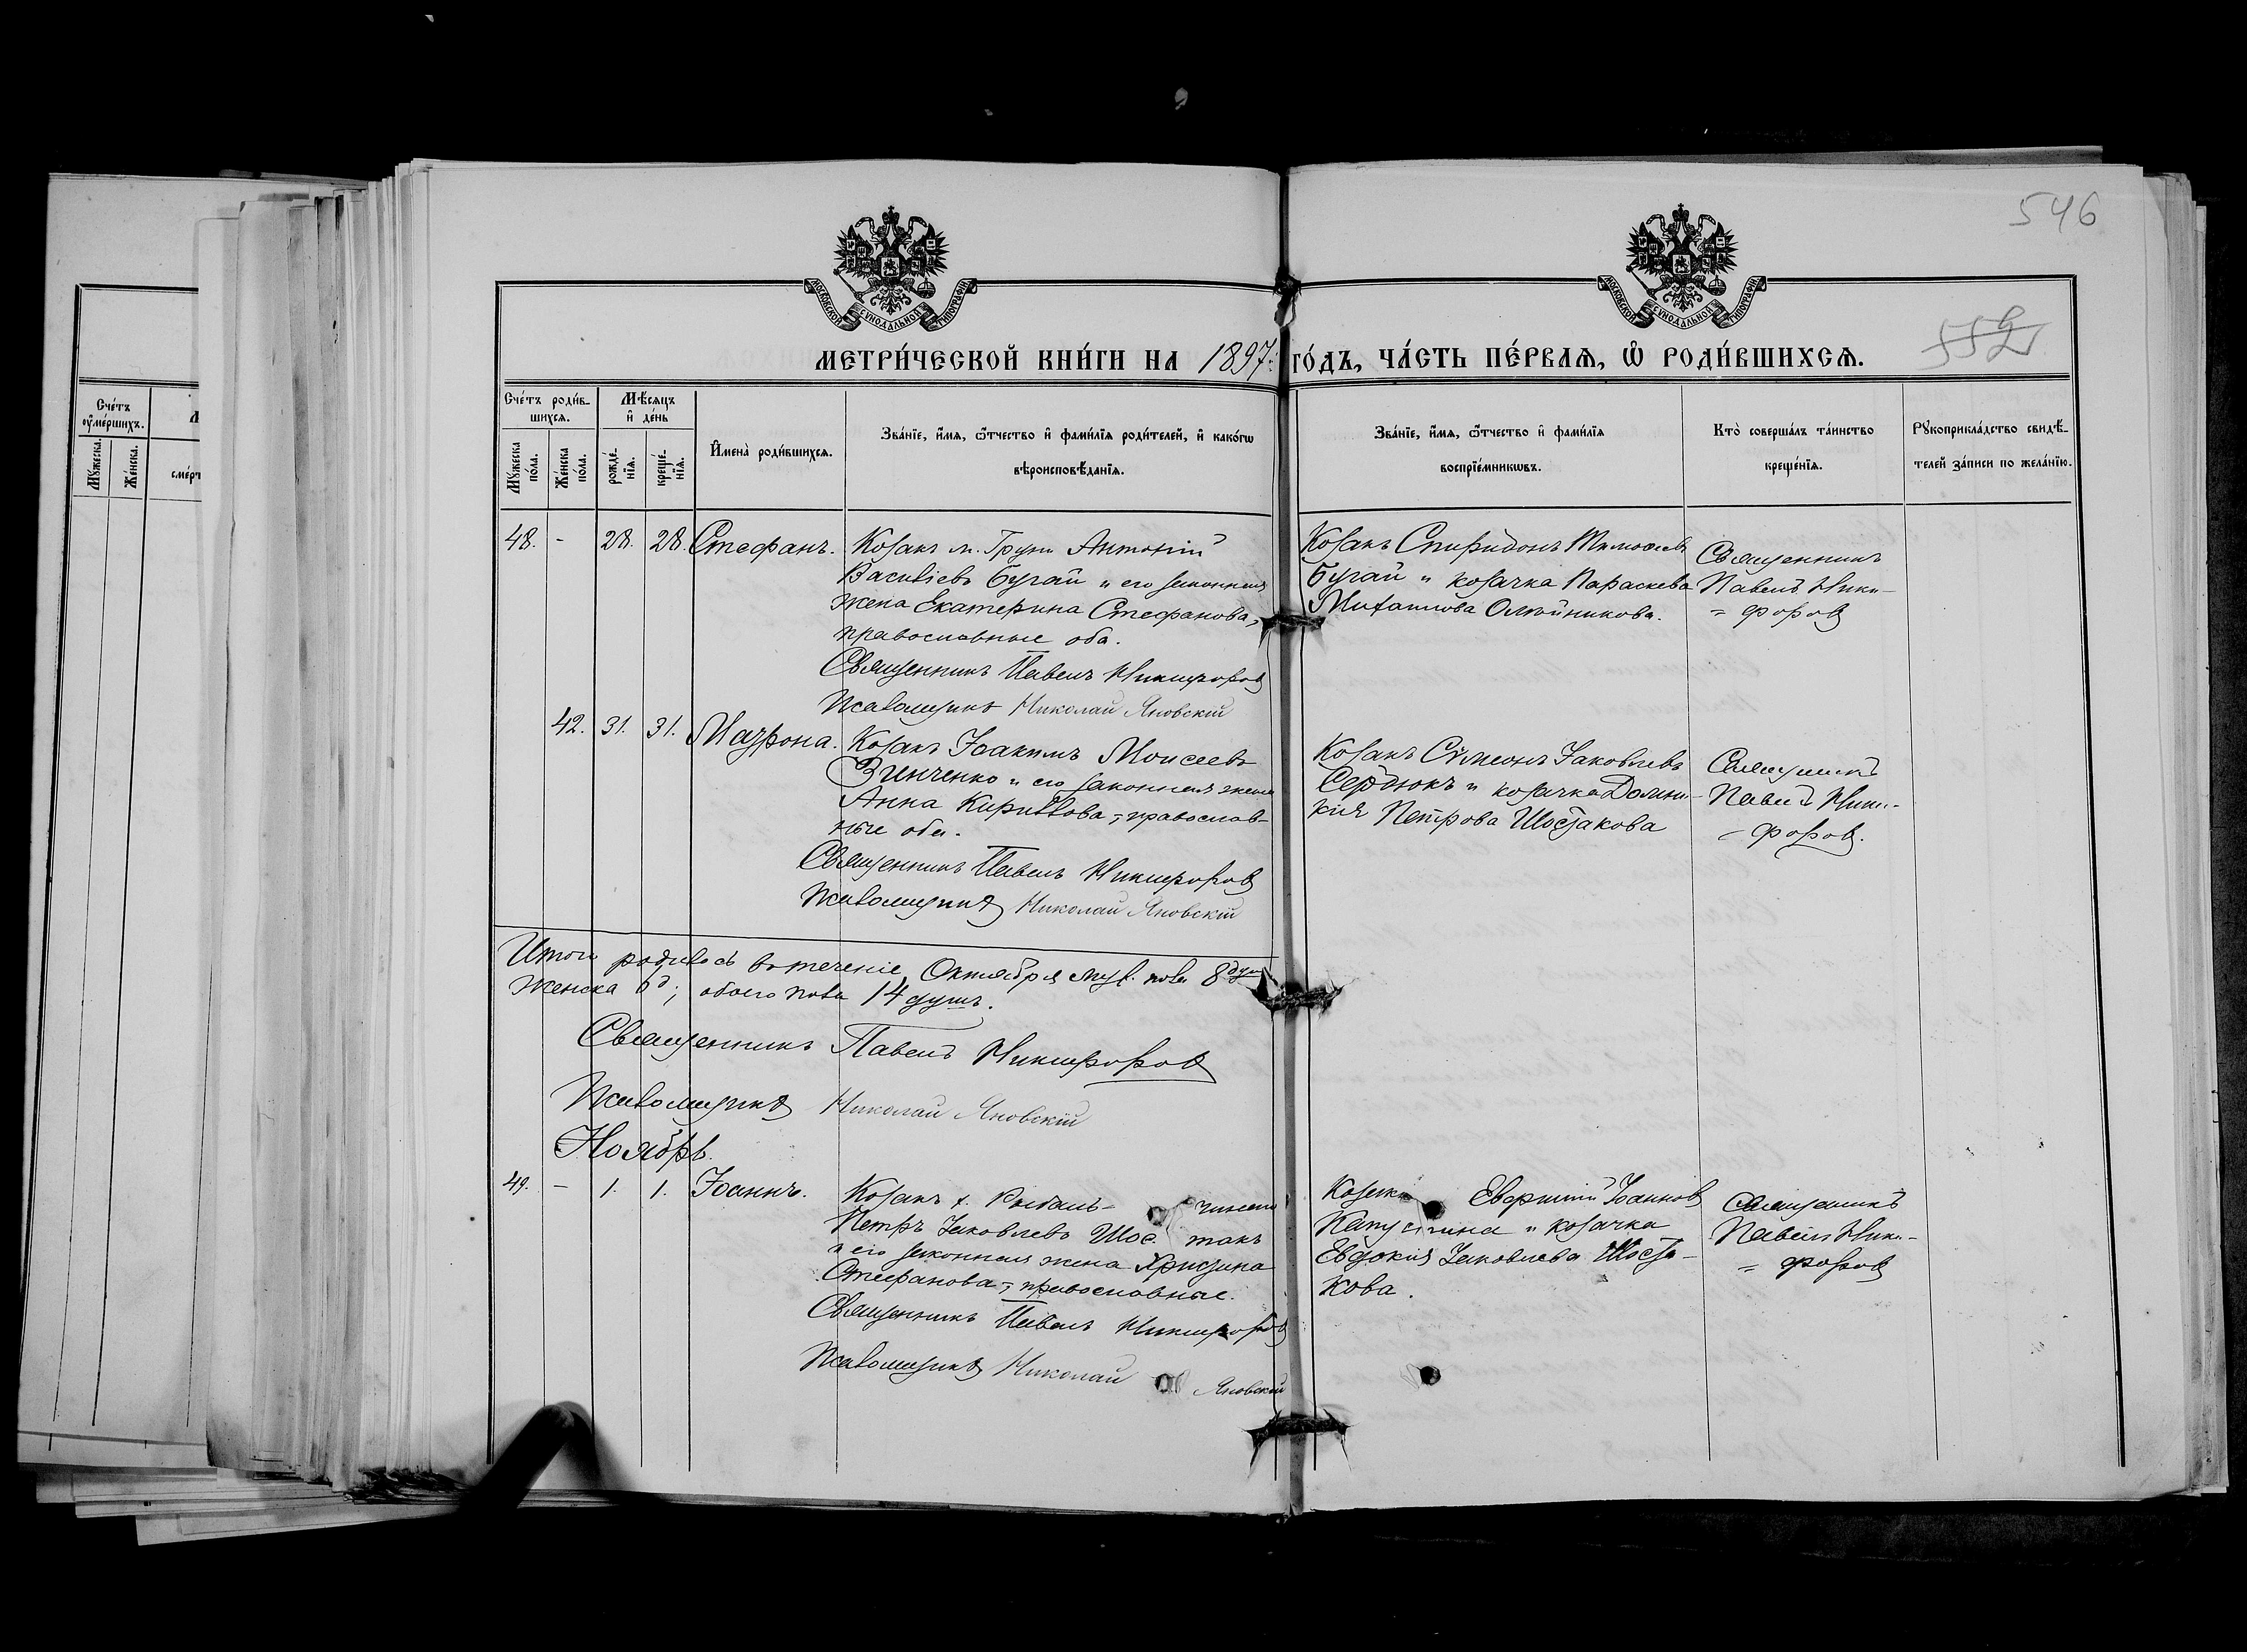 546
552
МОСКОВСКОЙ СУНОДАЛЬНОЙ ТИПОГРАФІИ
МОСКОВСКОЙ СУНОДАЛЬНОЙ ТИПОГРАФІИ
МЕТРИ́ЧЕСКОЙ КНИ́ГИ НА 1897. ГО́ДЪ, ЧА́СТЬ ПЕ́РВАѦ, Ѡ҆ РОДИ́ВШИХСѦ.
Сче́тъ ᲂу҆ме́ршихъ.
Мꙋ́жеска.
Же́нска.
Сче́тъ роди́в-
шихсѧ.
Мꙋ́жеска по́ла.
Же́нска по́ла.
Мѣ́сѧцъ
и҆ де́нь
рожде́-
нїѧ.
креще́-
нїѧ.
И҆мена̀ роди́вшихсѧ.
Зва́нїе, и҆́мѧ, ѻ҆́тчество и҆ фами́лїѧ роди́телей, и҆ како́гѡ
вѣроисповѣ́данїѧ.
Зва́нїе, и҆́мѧ, ѻ҆́тчество и҆ фами́лїѧ
воспрїе́мникѡвъ.
Кто̀ соверша́лъ та́инство
креще́нїѧ.
Рꙋкоприкла́дство свидѣ́-
телей за́писи по жела́нїю.
48. - 28. 28. Стефанъ.
Козакъ м. Груни Антоній
Василіевъ Бугай и его законная
жена Екатерина Стефанова,
православные оба.
Священникъ Павелъ Никифоровъ
Псаломщикъ Николай Яновскій
Козакъ Спиридонъ Тимофеевъ
Бугай и козачка Параскева
Михаилова Олейникова.
Священникъ
Павелъ Ники-
= форовъ
42. 31. 31. Матрона.
Козакъ Іоакимъ Моисеевъ
Зинченко и его законная жена
Анна Кириллова, православ-
ные оба.
Священникъ Павелъ Никифоровъ
Псаломщикъ Николай Яновскій
Козакъ Сѵмеонъ Іаковлевъ
Сердюкъ и козачка Домни-
кія Петрова Шостакова
Священникъ
Павелъ Ники-
- форовъ.
Итого родилось въ теченіе Октября муж. пола 8 душ
женска 6 д; обоего пола 14 душъ.
Священникъ Павелъ Никифоровъ
Псаломщикъ Николай Яновскій
Ноябрь.
49. - 1. 1. Іоаннъ.
Козакъ х.
Петръ Іаковлевъ Шос такъ
и его законная жена Христина
Стефанова, православные.
Священникъ Павелъ Никифоровъ
Псаломщикъ Николай Яновскій
Козакъ Евфимій Іоанновъ
Капустина и козачка
Евдокія Іаковлева Шоста-
кова.
Священникъ
Павелъ Ники-
= форовъ